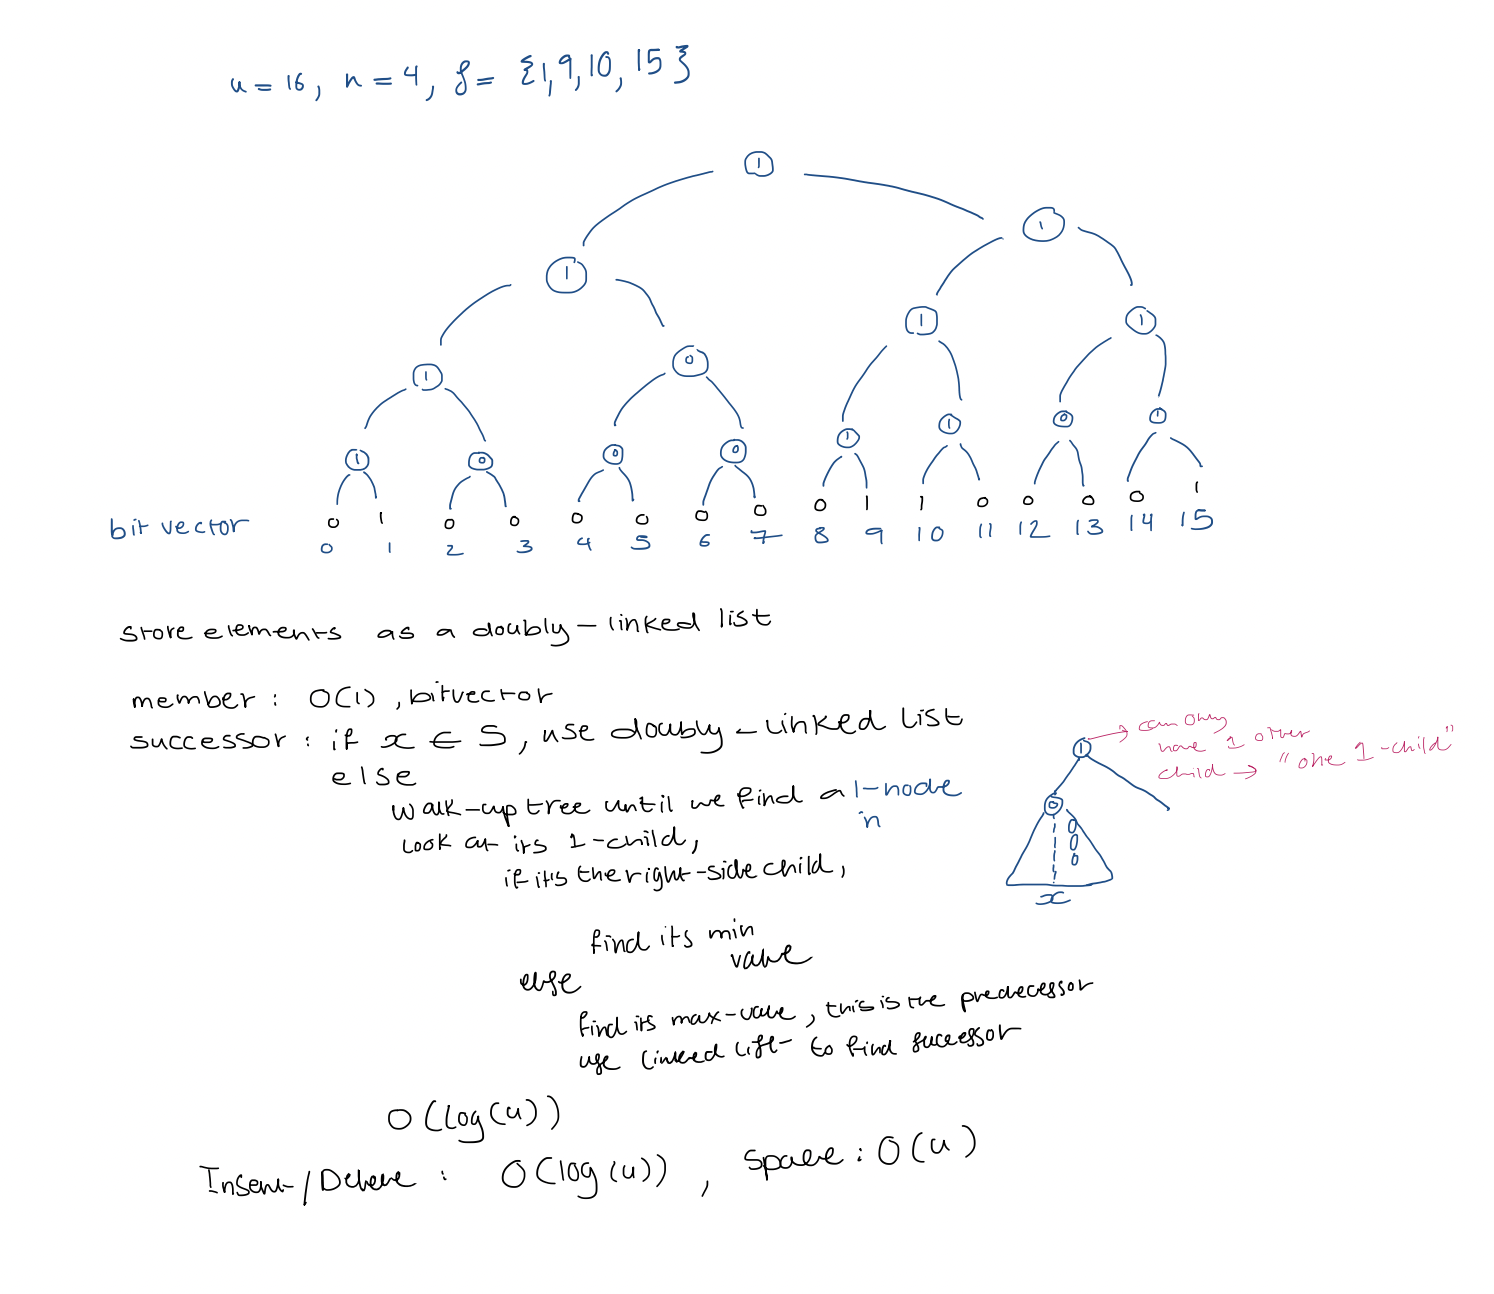 u = 16, n = 4, S = {1,9,10,15}
1
1
1
1
1
1
0
1
0
0
0
1
1
0
1
bit vector
0 1 0 0 0 0 0 0 0 1 1 0 0 0 0 1
0 1 2 3 4 5 6 7 8 9 10 11 12 13 14 15
store elements as a doubly-linked list
member : O(1), bitvector
successor : if x ∈ S, use doubly-linked list
else
walk-up tree until we find a 1-node
in
look at its 1-child,
if it's the right-side child,
find its min
value
else
find its max-value, this is the predecessor
use linked list to find successor
O(log(u))
Insert/Delete : O(log(u)), Space : O(u)
1
can only
have 1 other
child → "one 1-child"
0
0
0
0
x